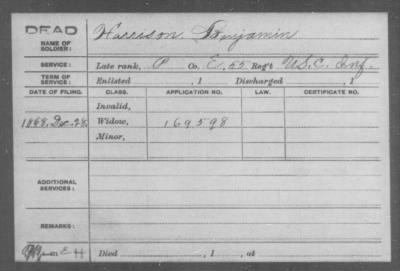 DEAD
NAME OF SOLDIER: Harrison Benjamin
SERVICE: Late rank, P Co. E, 55 Reg't U.S.C. Inf.
TERM OF SERVICE: Enlisted , 1 Discharged , 1
DATE OF FILING. CLASS. APPLICATION NO. LAW. CERTIFICATE NO.
Invalid,
1868, Dec. 28. Widow, 169598
Minor,
ADDITIONAL SERVICES:
REMARKS:
Died , 1 , at